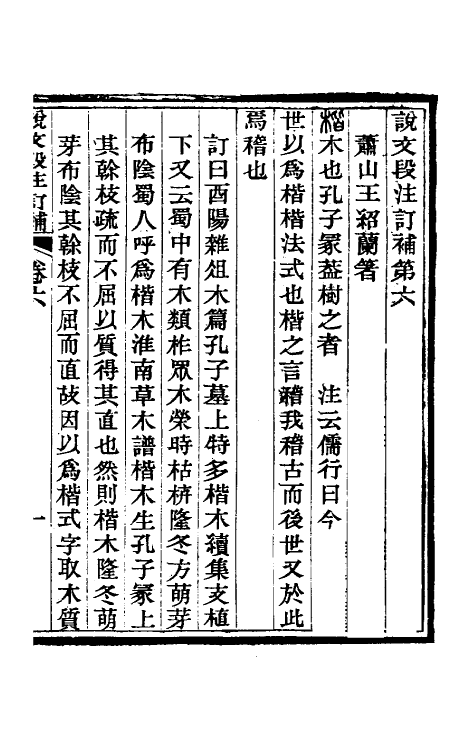 說文段注訂補第六
蕭山王紹蘭箸
楷木也孔子冡葢樹之者　注云儒行曰今
世以爲楷楷法式也楷之言稽我稽古而後世又於此
爲稽也
訂曰酉陽雜俎木篇孔子墓上特多楷木續集支植
下又云蜀中有木類柞眾木榮時枯枿隆冬方萌芽
布陰蜀人呼爲楷木淮南草木譜楷木生孔子冡上
其榦枝疏而不屈以質得其直也然則楷木隆冬萌
芽布陰其榦枝不屈而直故因以爲楷式字取木質
說文段注訂補　卷六　一